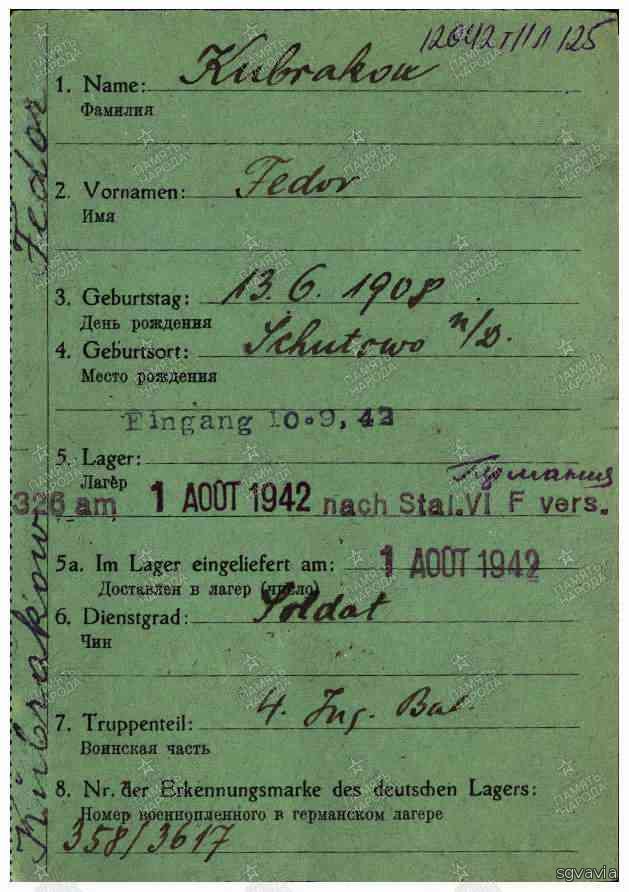 12042 т// л 125
1. Name: Kubrakow
Фамилия
2. Vornamen: Fedor
Имя
3. Geburtstag: 13.6.1908
День рождения
4. Geburtsort: Schutowo n/D.
Место рождения
Eingang 10.9,42
5. Lager:
Лагерь
Германия
326 am 1 AOÛT 1942 nach Stal.VI F vers.
5a. Im Lager eingeliefert am: 1 AOÛT 1942
Доставлен в лагер (число)
6. Dienstgrad: Soldat
Чин
7. Truppenteil: 4. Ing. Bat.
Воинская часть
8. Nr. der Erkennungsmarke des deutschen Lagers:
Номер военнопленного в германском лагере
358/3617
Kubrakow Fedor
ПАМЯТЬ НАРОДА
sgvavia